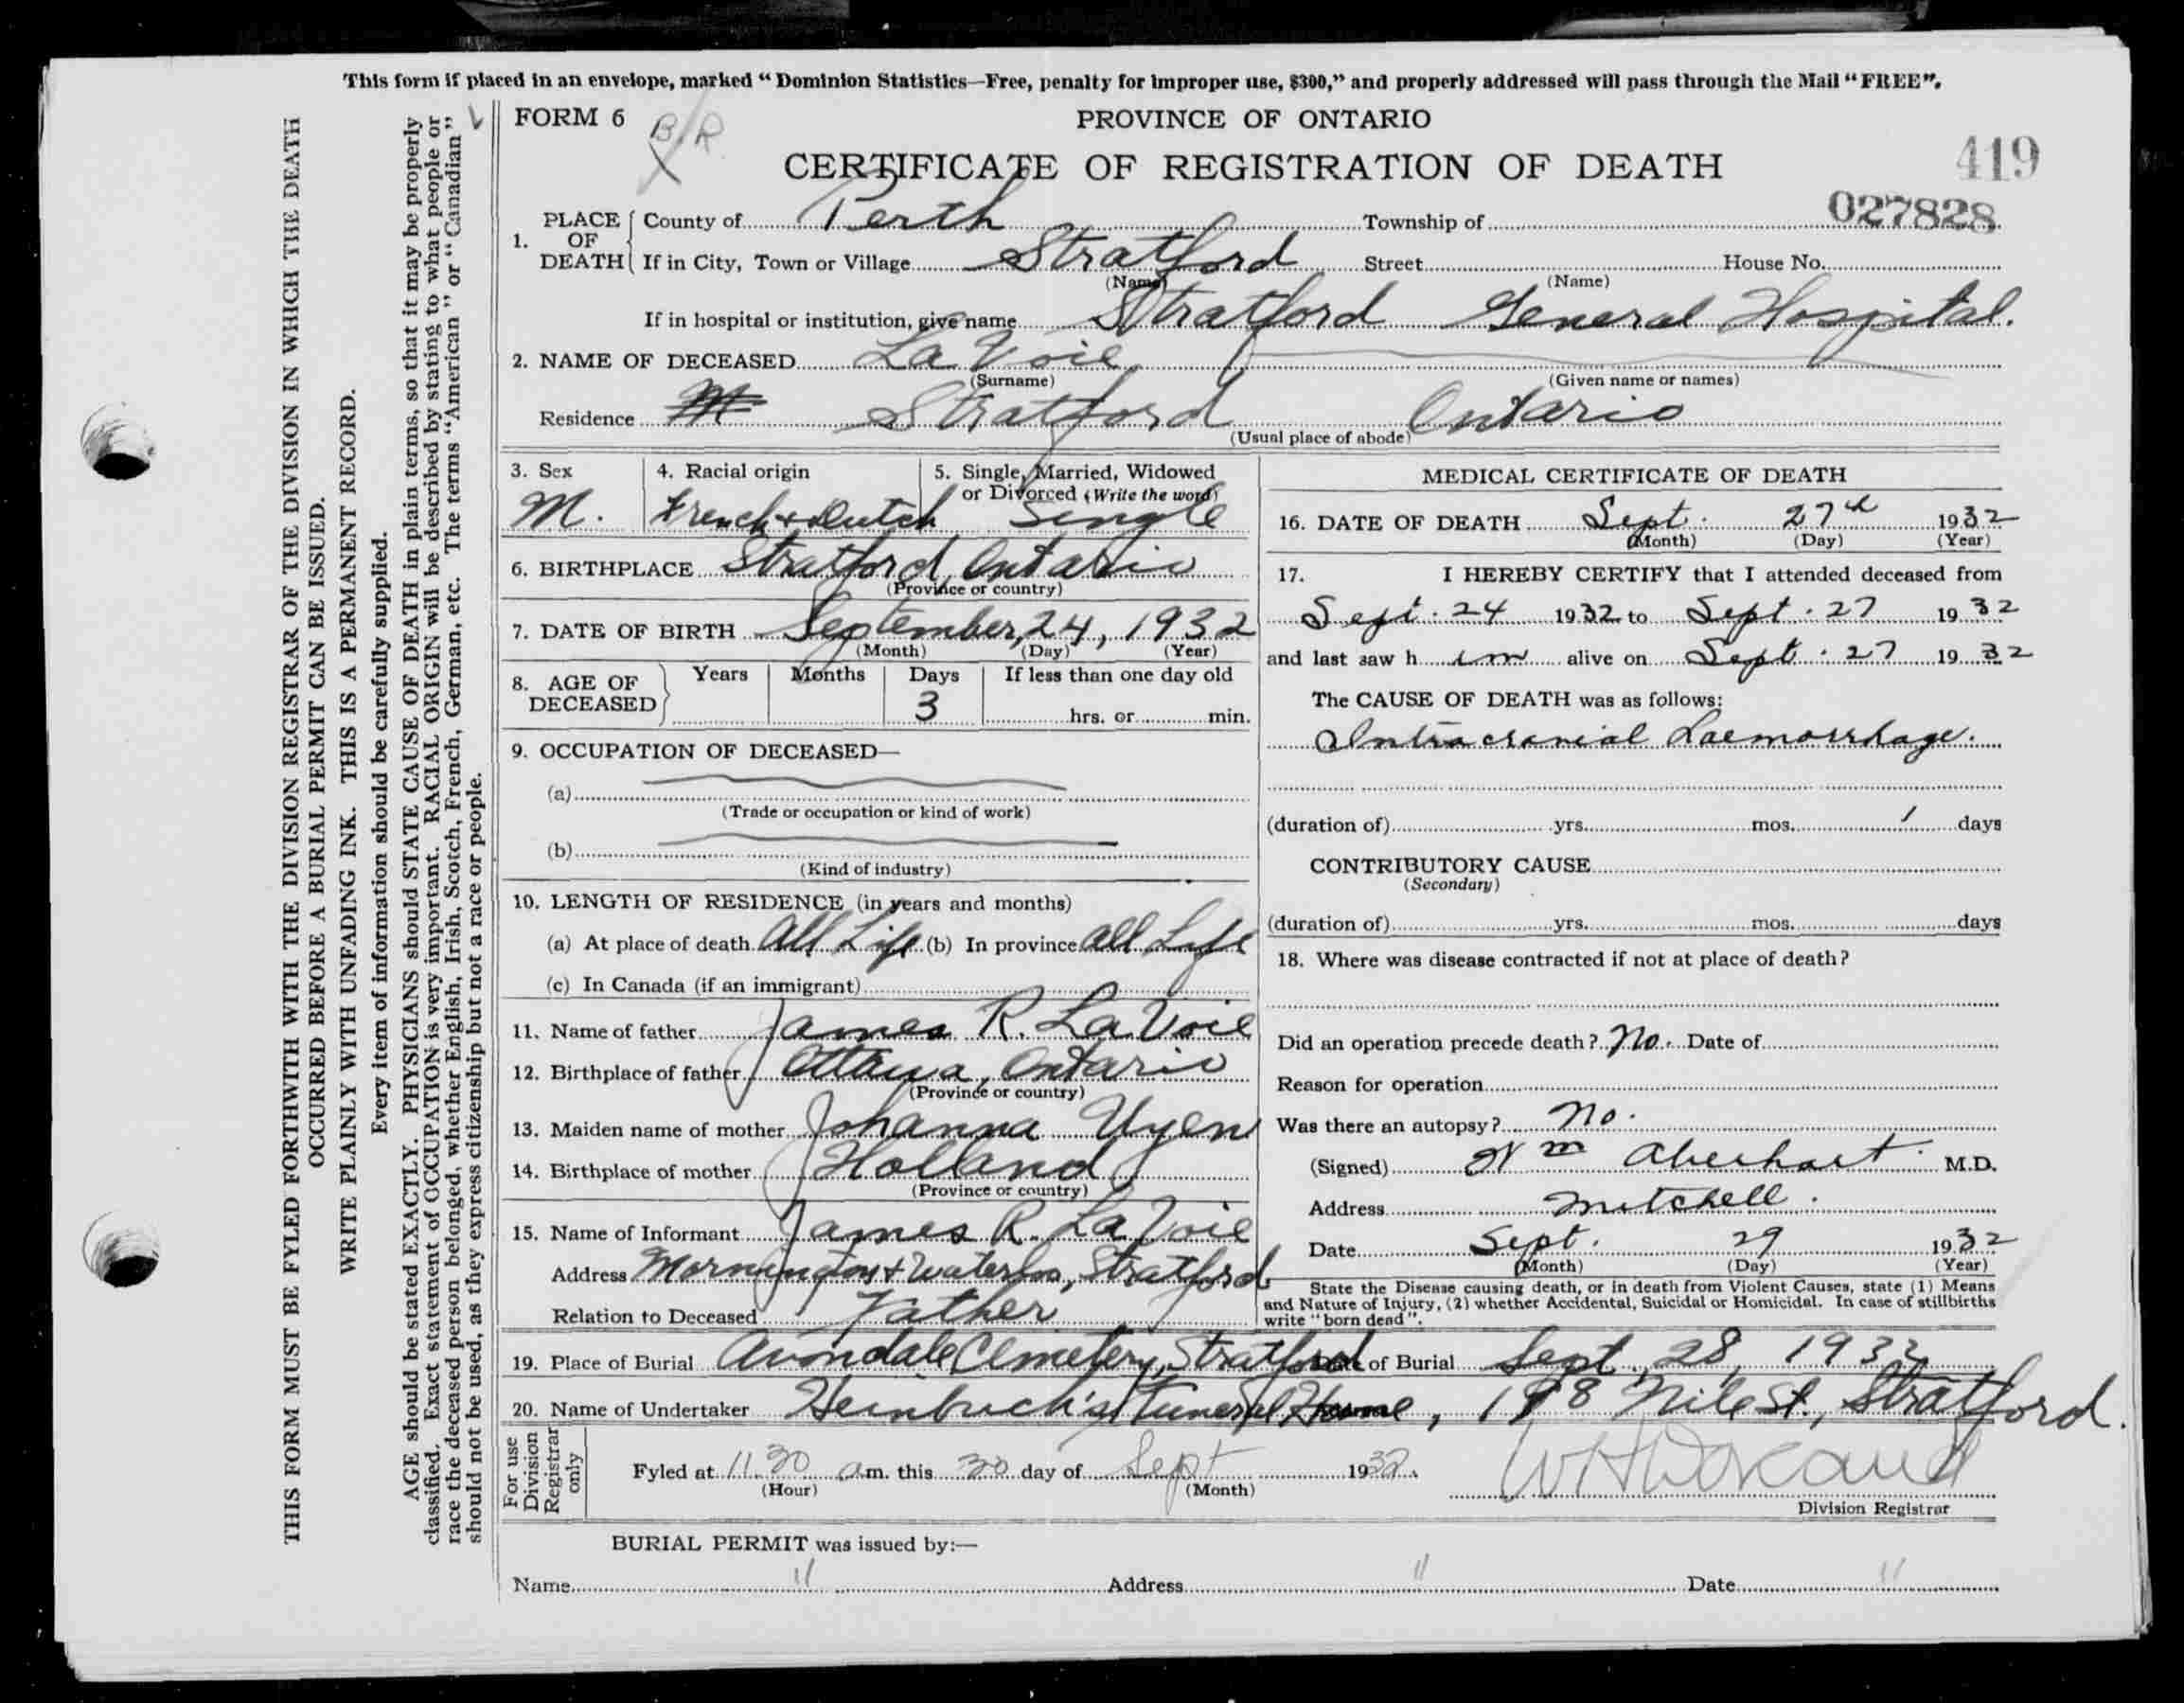 This form if placed in an envelope, marked “Dominion Statistics—Free, penalty for improper use, $300,” and properly addressed will pass through the Mail “FREE”.
THIS FORM MUST BE FYLED FORTHWITH WITH THE DIVISION REGISTRAR OF THE DIVISION IN WHICH THE DEATH
OCCURRED BEFORE A BURIAL PERMIT CAN BE ISSUED.
WRITE PLAINLY WITH UNFADING INK. THIS IS A PERMANENT RECORD.
Every item of information should be carefully supplied.
AGE should be stated EXACTLY. PHYSICIANS should STATE CAUSE OF DEATH in plain terms, so that it may be properly
classified. Exact statement of OCCUPATION is very important. RACIAL ORIGIN will be described by stating to what people or
race the deceased person belonged, whether English, Irish, Scotch, French, German, etc. The terms “American” or “Canadian”
should not be used, as they express citizenship but not a race or people.
FORM 6 B/R
PROVINCE OF ONTARIO
419
CERTIFICATE OF REGISTRATION OF DEATH
027828
1. PLACE OF DEATH County of Perth Township of
If in City, Town or Village Stratford Street House No.
(Name) (Name)
If in hospital or institution, give name Stratford General Hospital.
2. NAME OF DECEASED La Voie
(Surname) (Given name or names)
Residence Stratford Ontario
(Usual place of abode)
3. Sex 4. Racial origin 5. Single, Married, Widowed
or Divorced (Write the word)
M. French & Dutch Single
6. BIRTHPLACE Stratford, Ontario
(Province or country)
7. DATE OF BIRTH September, 24, 1932
(Month) (Day) (Year)
8. AGE OF DECEASED Years Months Days If less than one day old
3 hrs. or min.
9. OCCUPATION OF DECEASED—
(a)
(Trade or occupation or kind of work)
(b)
(Kind of industry)
10. LENGTH OF RESIDENCE (in years and months)
(a) At place of death All Life (b) In province All Life
(c) In Canada (if an immigrant)
11. Name of father James R. La Voie
12. Birthplace of father Ottawa, Ontario
(Province or country)
13. Maiden name of mother Johanna Uyen
14. Birthplace of mother Holland
(Province or country)
15. Name of Informant James R. La Voie
Address Mornington & Waterloo, Stratford
Relation to Deceased Father
MEDICAL CERTIFICATE OF DEATH
16. DATE OF DEATH Sept. 27th 1932
(Month) (Day) (Year)
17. I HEREBY CERTIFY that I attended deceased from
Sept. 24 1932 to Sept. 27 1932
and last saw h im alive on Sept. 27 1932
The CAUSE OF DEATH was as follows:
Intracranial Haemorrhage.
(duration of) yrs. mos. 1 days
CONTRIBUTORY CAUSE
(Secondary)
(duration of) yrs. mos. days
18. Where was disease contracted if not at place of death?
Did an operation precede death? No. Date of
Reason for operation
Was there an autopsy? No.
(Signed) Wm Aberhart M.D.
Address Mitchell.
Date Sept. 29 1932
(Month) (Day) (Year)
State the Disease causing death, or in death from Violent Causes, state (1) Means
and Nature of Injury, (2) whether Accidental, Suicidal or Homicidal. In case of stillbirths
write “born dead”.
19. Place of Burial Avondale Cemetery, Stratford Date of Burial Sept. 28, 1932
20. Name of Undertaker Heinbuch's Funeral Home, Nile St., Stratford.
For use Division Registrar only
Fyled at 11.30 a.m. this 30 day of Sept 1932.
(Hour) (Month)
Division Registrar
BURIAL PERMIT was issued by:—
Name " Address " Date "